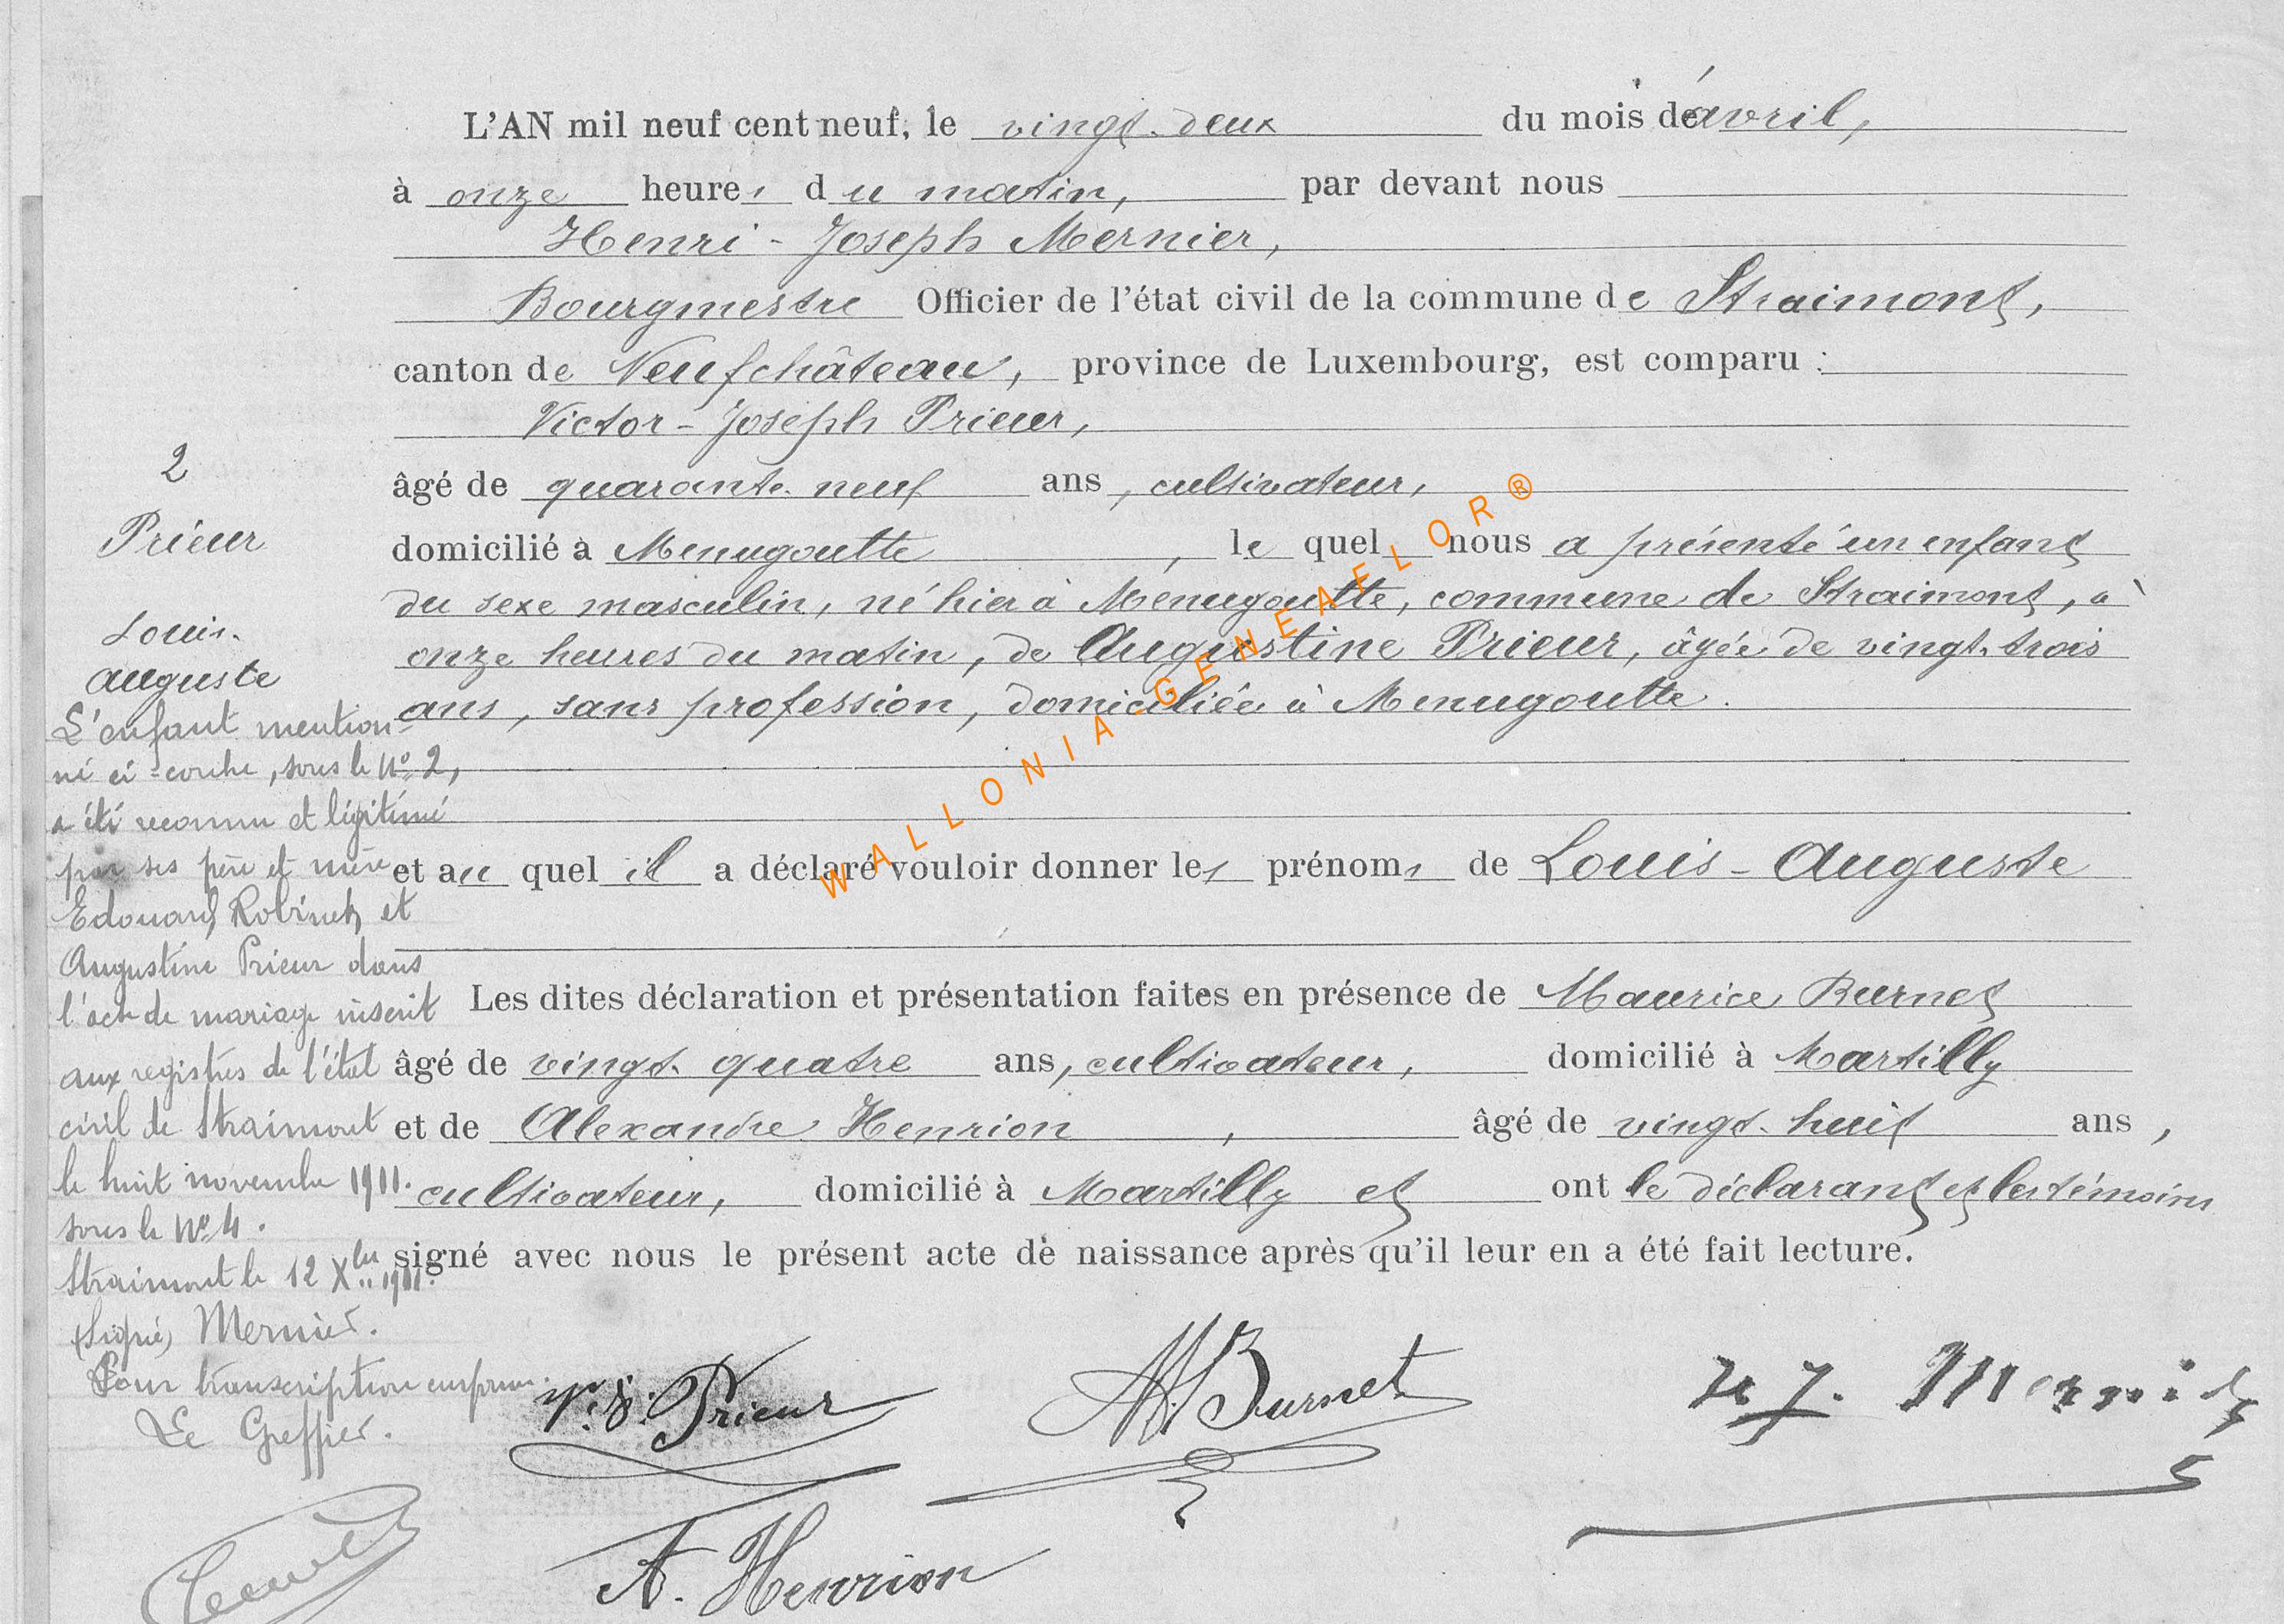 L'AN mil neuf cent neuf, le vingt-deux du mois de avril,
à onze heures du matin, par devant nous
Henri-Joseph Mernier,
Bourgmestre Officier de l'état civil de la commune de Straimont,
canton de Neufchâteau, province de Luxembourg, est comparu :
Victor-Joseph Prieur,
âgé de quarante-neuf ans, cultivateur,
domicilié à Menugoutte, lequel nous a présenté un enfant
du sexe masculin, né hier à Menugoutte, commune de Straimont, à
onze heures du matin, de Augustine Prieur, âgée de vingt-trois
ans, sans profession, domiciliée à Menugoutte.
et auquel il a déclaré vouloir donner les prénoms de Louis-Auguste
Les dites déclaration et présentation faites en présence de Maurice Burnet
âgé de vingt-quatre ans, cultivateur, domicilié à Martilly
et de Alexandre Henrion, âgé de vingt-huit ans,
cultivateur, domicilié à Martilly et ont le déclarant et les témoins
signé avec nous le présent acte de naissance après qu'il leur en a été fait lecture.
2
Prieur
Louis-
Auguste
L'enfant mention-
né ci-contre, sous le No 2,
a été reconnu et légitimé
par ses père et mère
Edouard Robinet et
Augustine Prieur dans
l'acte de mariage inscrit
aux registres de l'état
civil de Straimont
le huit novembre 1911.
sous le No 4.
Straimont le 12 Xbre 1911.
(Signé) Mernier.
Pour transcription conforme.
Le Greffier.
V. J. Prieur
M. Burnet
H J. Mernier
A. Henrion
WALLONIA-GENEAFLOR®